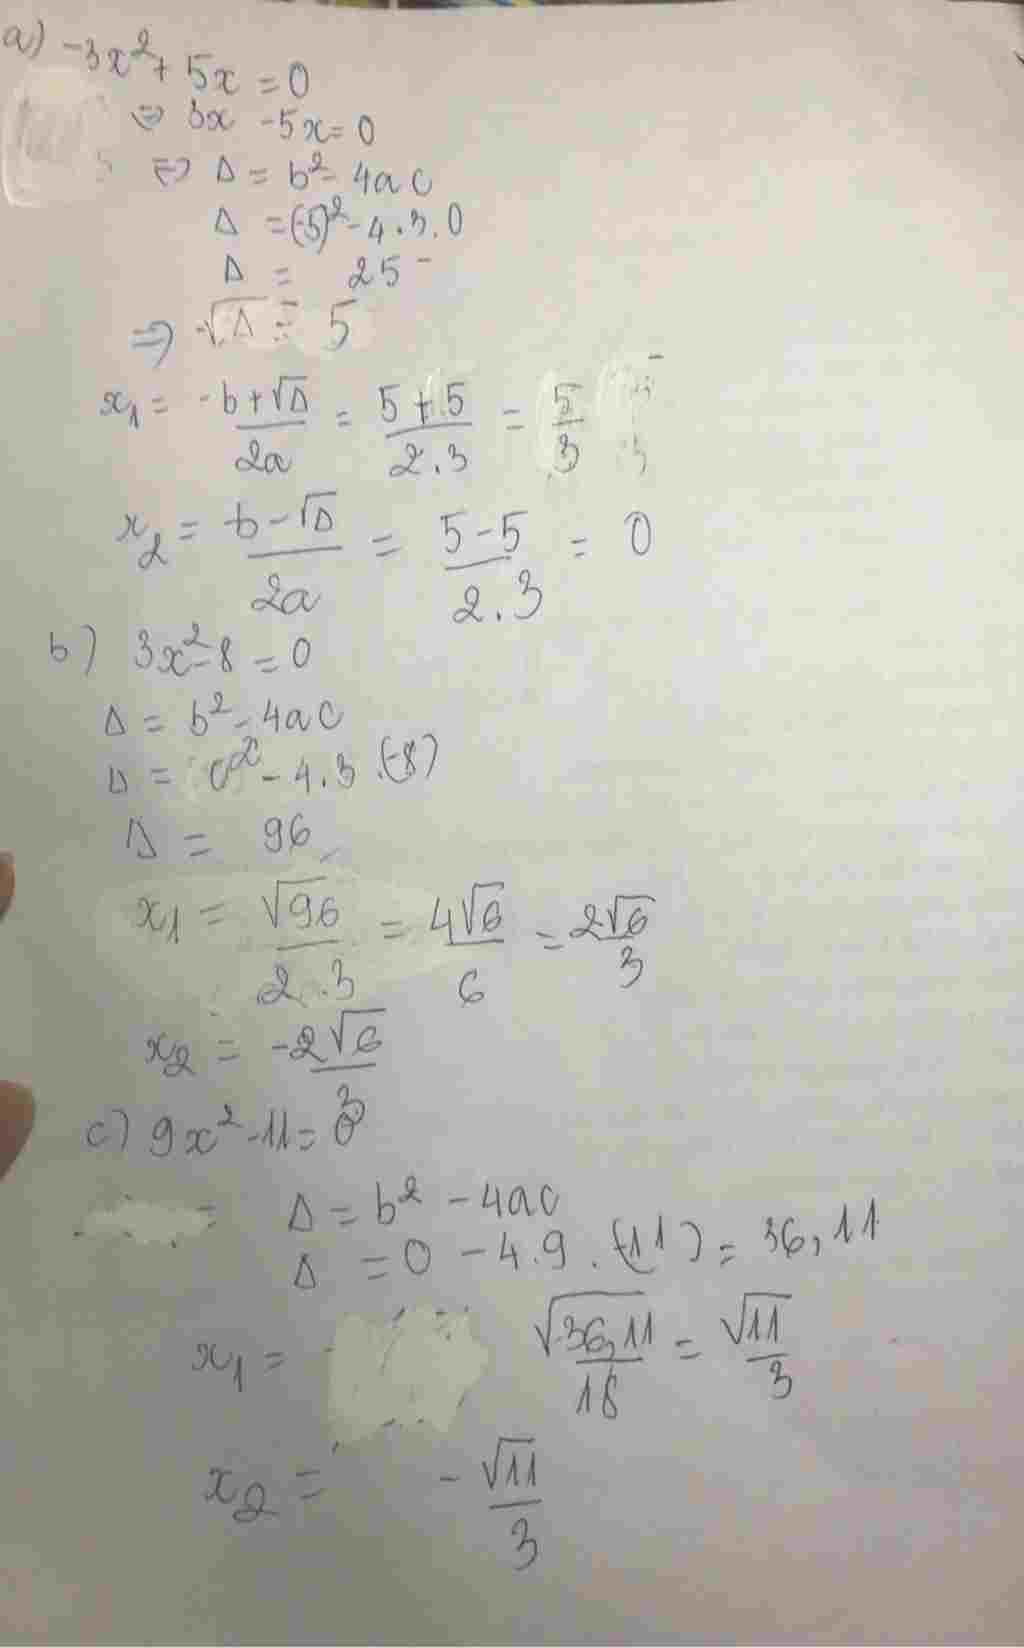 a) -3x² + 5x = 0
⇔ 3x - 5x = 0
⇔ Δ = b² - 4ac
Δ = (-5)² - 4.3.0
Δ = 25
⇒ √Δ = 5
x₁ = -b+√Δ/2a = 5+5/2.3 = 5/3
x₂ = -b-√Δ/2a = 5-5/2.3 = 0
b) 3x² - 8 = 0
Δ = b² - 4ac
Δ = 0² - 4.3.(-8)
Δ = 96
x₁ = √96/2.3 = 4√6/6 = 2√6/3
x₂ = -2√6/3
c) 9x² - 11 = 0
Δ = b² - 4ac
Δ = 0 - 4.9.(-11) = 36,11
x₁ = √36,11/18 = √11/3
x₂ = -√11/3